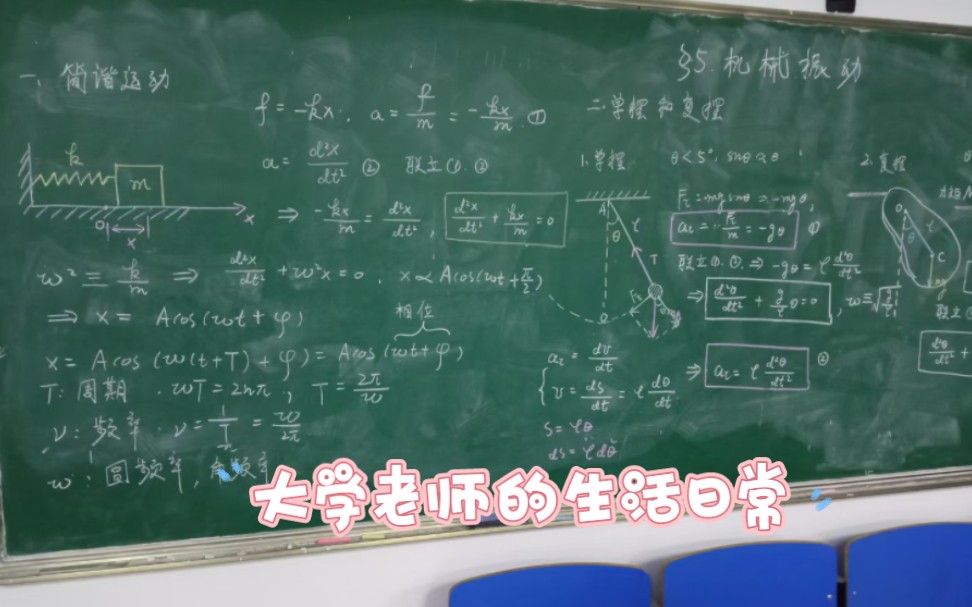 §5. 机械振动
一、简谐运动
f = -kx. a = f/m = -kx/m ①
a = d²x/dt² ② 联立①.②
k
m
O
x
x
⇒ -kx/m = d²x/dt², d²x/dt² + kx/m = 0
ω² = k/m ⇒ d²x/dt² + ω²x = 0 . x ∝ Acos(ωt + π/2)
⇒ x = Acos(ωt + φ)
相位
x = Acos(ω(t+T) + φ) = Acos(ωt + φ)
T: 周期 . ωT = 2nπ, T = 2π/ω
ν: 频率. ν = 1/T = ω/2π
ω: 圆频率,
二.单摆和复摆
1.单摆 θ < 5°, sinθ ≈ θ
A
θ
l
T
O
= mg sinθ = -mgθ,
= -gθ ①
联立 ⇒ -gθ = l d²θ/dt²
⇒ d²θ/dt² + g/l θ = 0, ω = √g/l
aₜ = dv/dt
v = ds/dt = l dθ/dt
⇒ aₜ = l d²θ/dt² ②
s = lθ
ds = l dθ
2.复摆
O
θ
l
C
联立
d²θ/dt² +
大学老师的生活日常